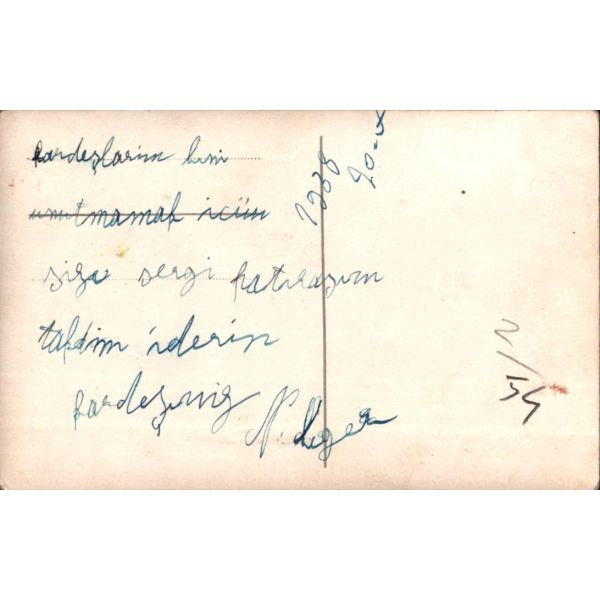 kardeşlarim beni
unutmamak icün
size sergi hatırasım
takdim iderin
kardeşiniz
N.
20-8
2/54